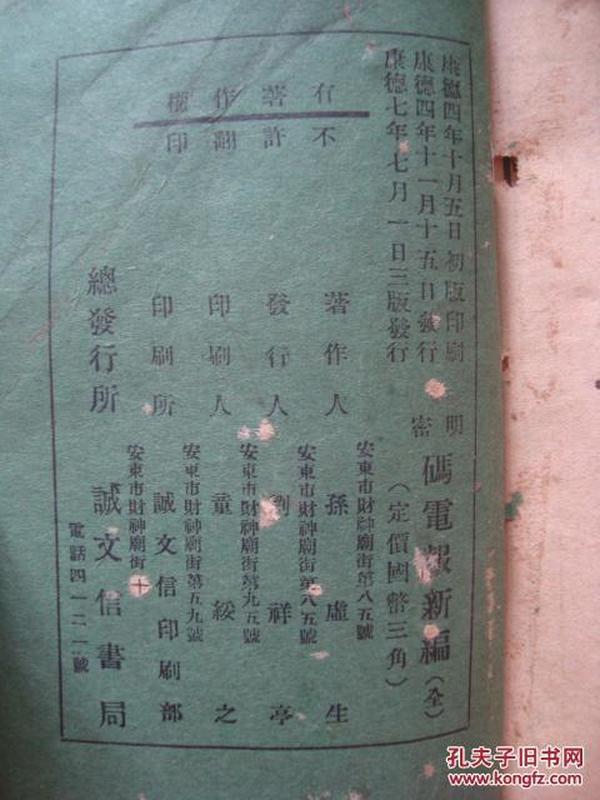 康德四年十月五日初版印刷
康德四年十一月十五日發行
康德七年七月一日三版發行
明密碼電報新編(全)
(定價國幣三角)
有著作權
不許翻印
安東市財神廟街第八五號
著作人 孫虛生
安東市財神廟街第八五號
發行人 劉祥亭
安東市財神廟街第九五號
印刷人 童綏之
安東市財神廟街第五九號
印刷所 誠文信印刷部
安東市財神廟街十
總發行所 誠文信書局
電話四一二一號
孔夫子旧书网
www.kongfz.com